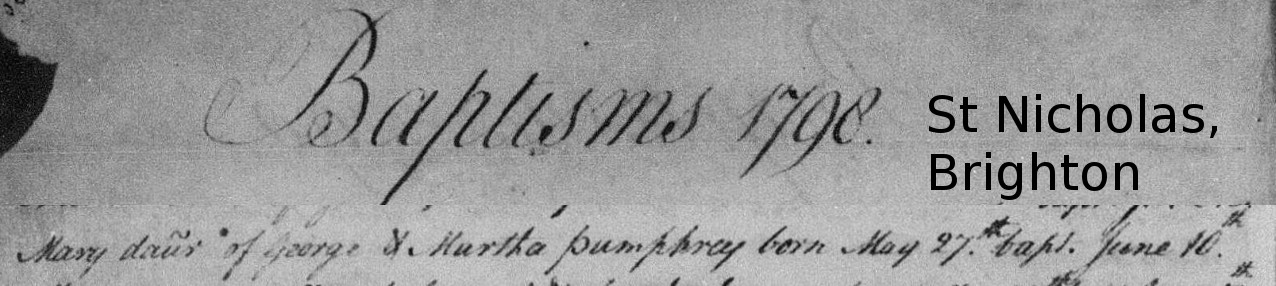 Baptisms 1798.
St Nicholas,
Brighton
Mary daũr of George & Martha pumphrey born May 27.th bapt. June 10.th